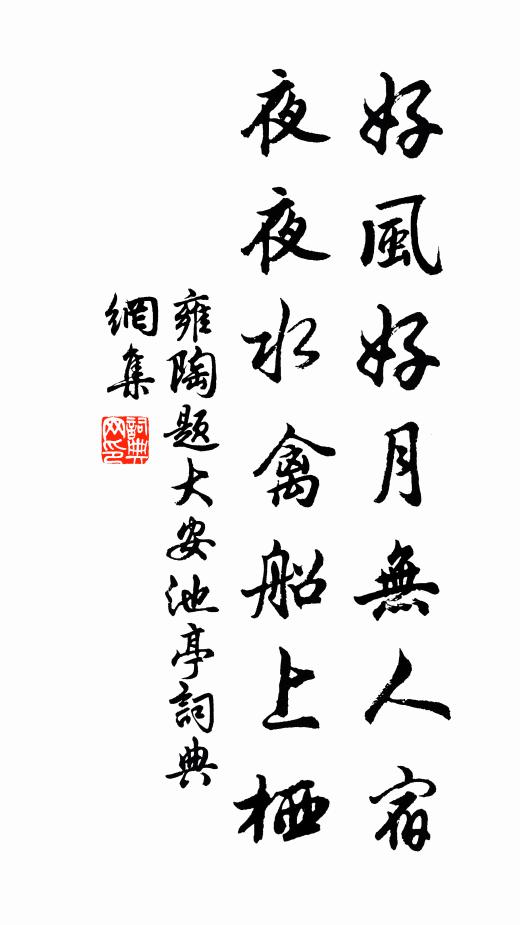 好風好月無人宿
夜夜水禽船上栖
雍陶題大安池亭詞典
網集
詞典
网印